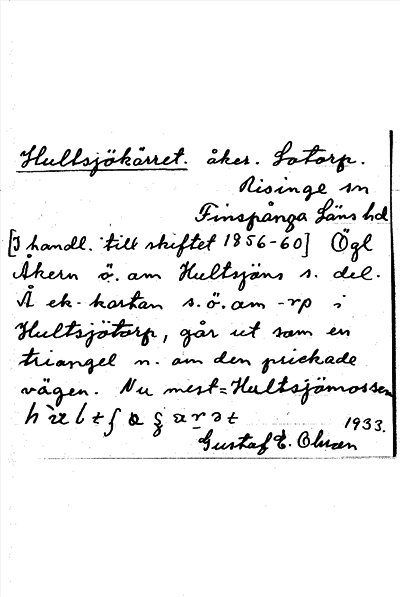 Hultsjökärret. åker. Lotorp.
Risinge sn
Finspånga Läns hd
[I handl. till skiftet 1856-60] Ögl
Åkern ö. om Hultsjöns s. del.
Å ek. kartan s.ö. om -rp i
Hultsjötorp, går ut som en
triangel n. om den prickade
vägen. Nu mest = Hultsjömossen
1933.
Gustaf E. Olsson